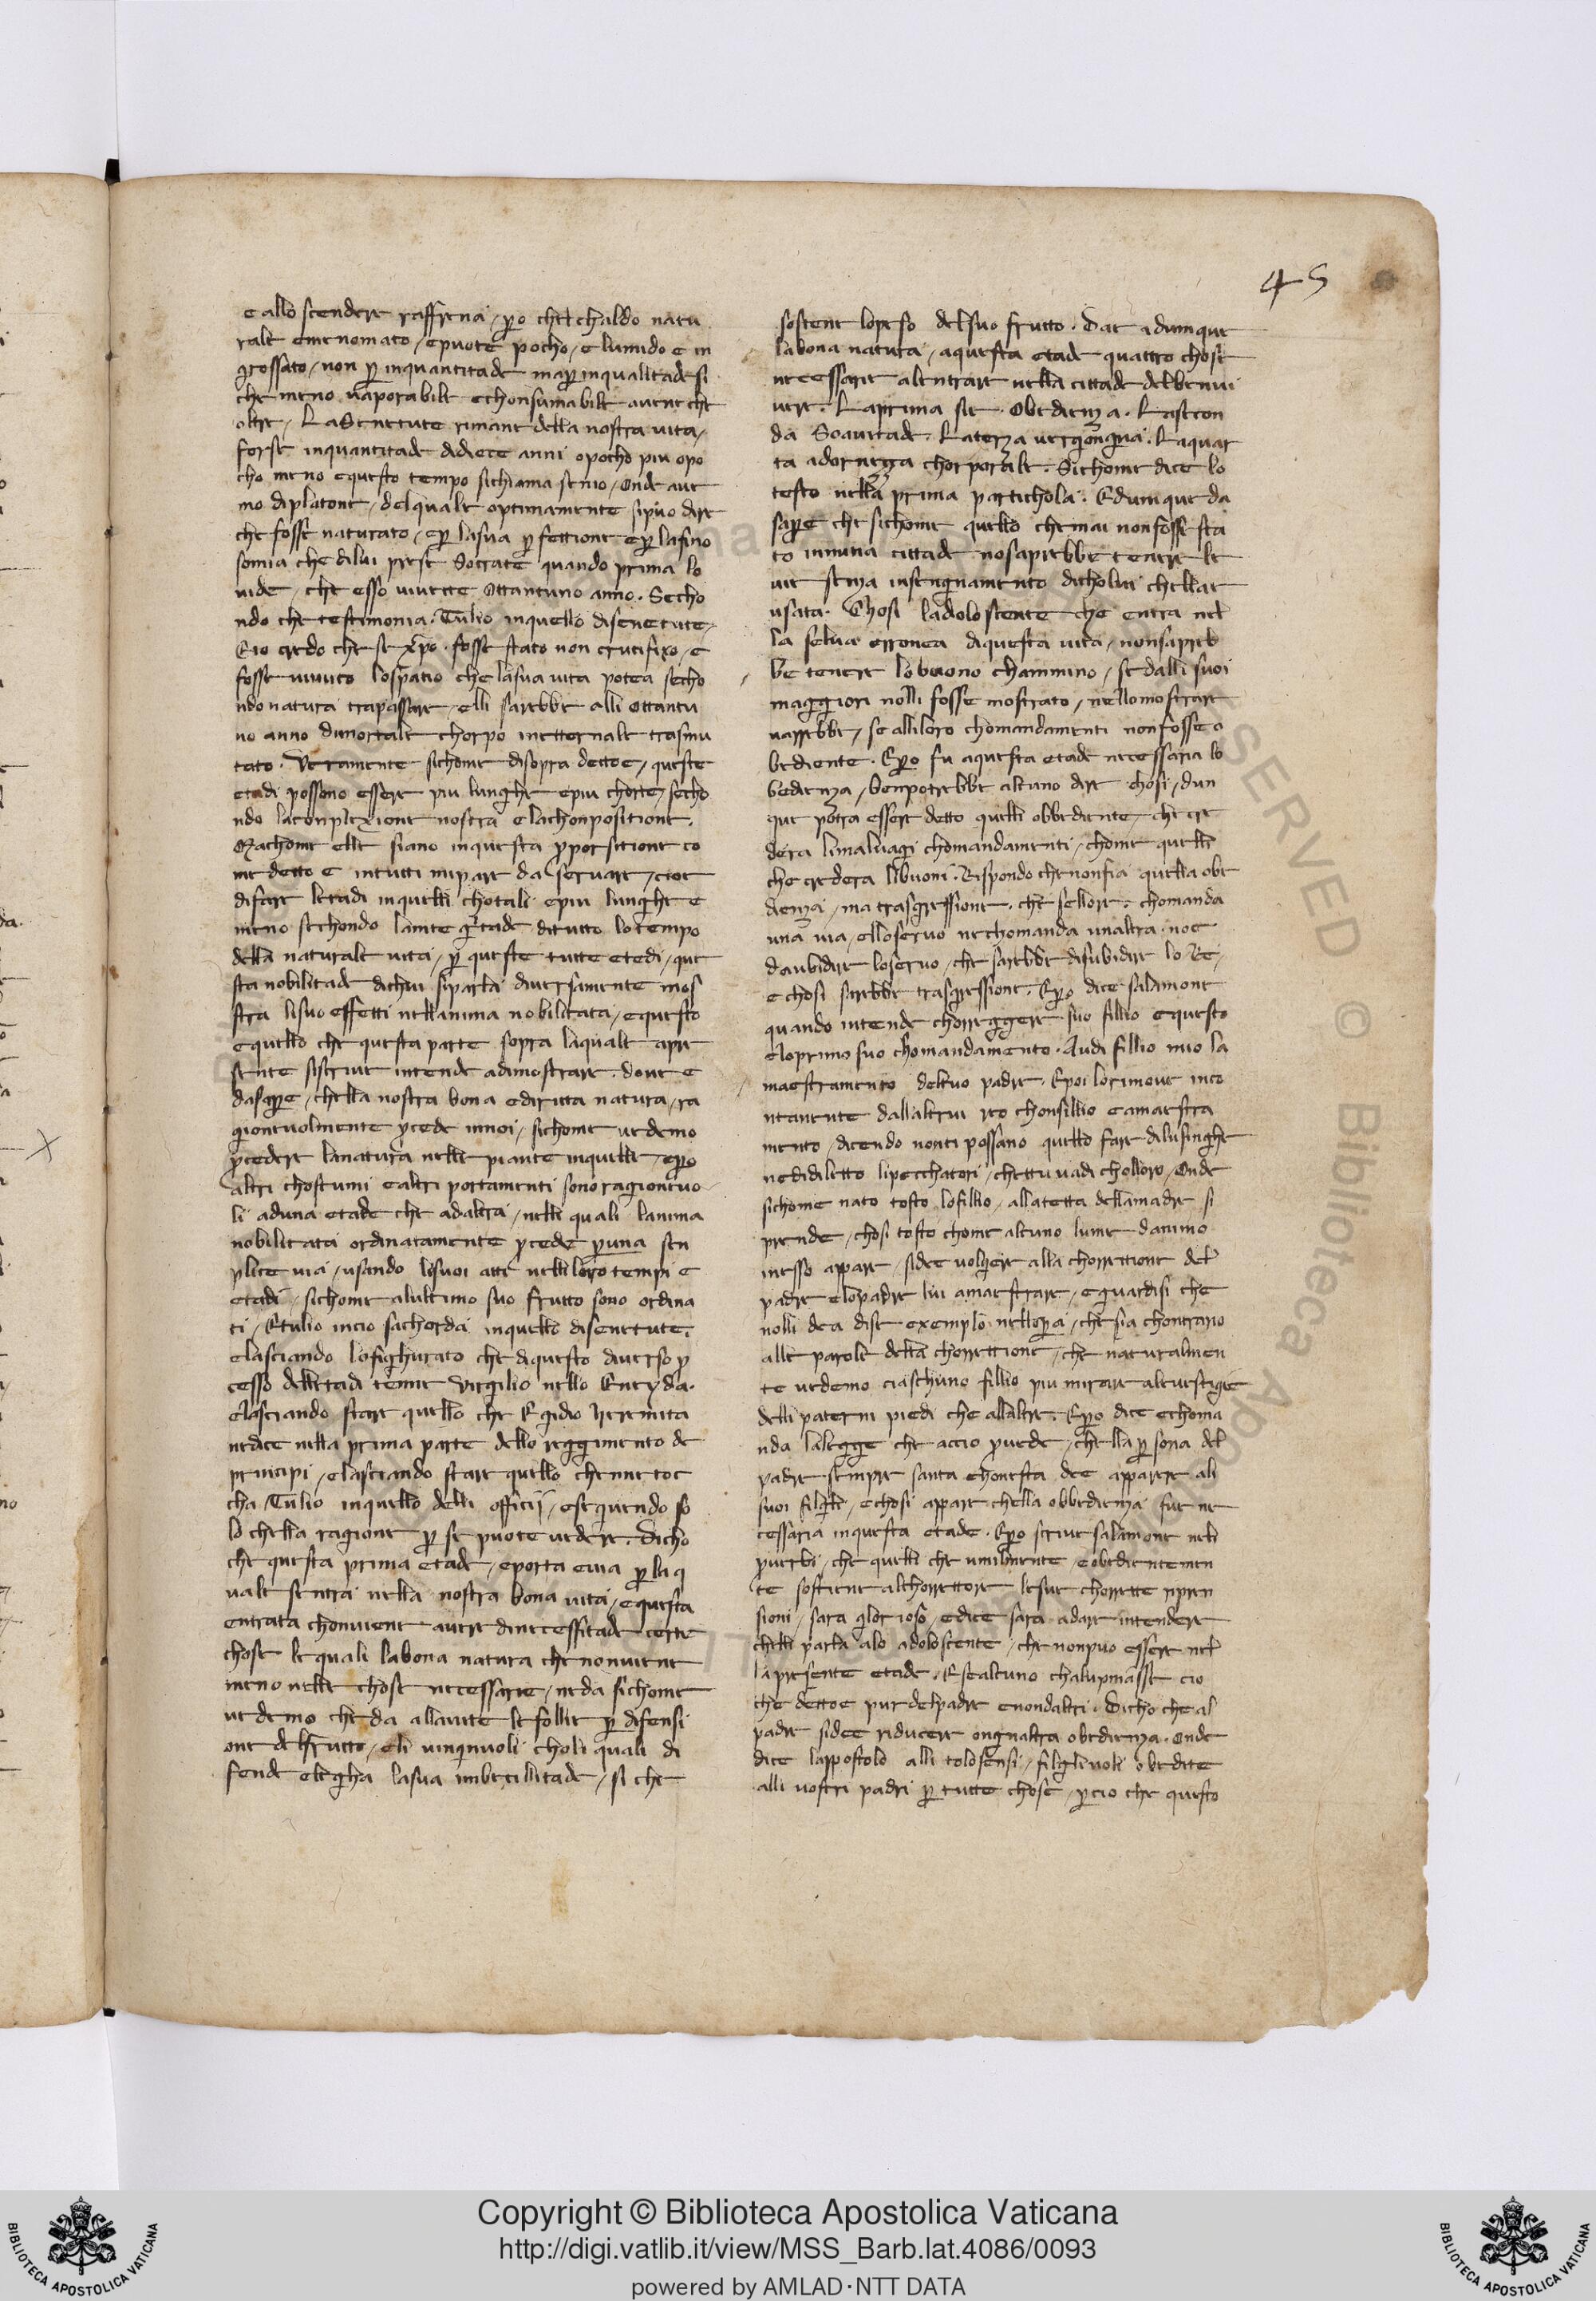 45
e allo scendere raffrena / po chel chaldo natu
rale emenomato / epuote pocho / e lumido e in
grossato / non p inquantitade map inqualitade si
che meno vaporabile echonsumabile avene che
oltre / La Senetute rimane della nostra vita /
forse inquantitade didiece anni opocho piu opo
cho meno equesto tempo sichiama senio / Onde ave
mo diplatone / delquale optimamente sipuo dire
che fosse naturato / ep lasua pfettione ep lafiso
somia che dilui prese Socrate quando prima lo
vide / che esso vivette Ottantuno anno . Secho
ndo che testimonia . Tulio inquello disenetute /
Eio credo che se xpo . fosse stato non crucifixo / e
fosse vivuto lospatio che lasua vita potea secho
ndo natura trapassare / elli sarebbe alli Ottantu
no anno dimortale chorpo inetternale trasmu
tato . Veramente sichome disopra dettoe / queste
etadi possono essere piu lunghe epiu chorte / secho
ndo laconplexione nostra elachonpositione .
Machome elle siano inquesta pporsitione co
me detto e intutti mipare da servare / cioe
difare letadi inquelli chotali epiu lunghe e
meno sechondo lainte gtade ditutto lo tempo
della naturale vita / p queste tutte etedi / que
sta nobilitade dichui siparla diversamente mos
tra lisuo effetti nellanima nobilitata / equesto
equello che questa parte sopra laquale apre
sente siscrive intende adimostrare . dove e
dasape / chella nostra bona ediritta natura / ra
gionevolmente pcede innoi / sichome vedemo
pcedere lanatura nelle piante inquelle / epo
altri chostumi ealtri portamenti sono ragionevo
li aduna etade che adaltra / nelli quali lanima
nobilitata ordinatamente pcede puna sen
plice via / usando lisuoi atti nelliloro tempi e
etadi / sichome alultimo suo frutto sono ordina
ti / Etulio incio sachorda inquello disenetute .
elasciando lofighurato che diquesto diverso p
cesso delletadi tenne Virgilio nello Eneyda .
elasciando stare quello che Egidio heremita
nedice nella prima parte dello reggimento de
principi / elasciando stare quello chenne toc
cha Tulio inquello delli officii / eseguendo so
lo chella ragione p se puote vedere . Dicho
che questa prima etade / eporta evia p la q
uale sentra nella nostra bona vita / equesta
entrata chonviene avere dinecessitade certe
chose le quali labona natura chenonviene
meno nelle chose necessarie / neda sichome
vedemo cheda allavite lefollie p difensi
one delfrutto / eli vingnuoli choli quali di
fende elegha lasua imbecillitade / si che
sostene lopeso delsuo frutto . Dae adunque
labona natura / aquesta etade quattro chose
necessarie alentrare nella cittade delbenvi
vere . Laprima sie . Obedienza . Lasecon
da Soavitade . Laterza vergongna . Laquar
ta adornezza chorporale . Sichome dice lo
testo nella prima partichola . Edunque da
sape che sichome quello chemai nonfosse sta
to innuna cittade nosaprebbe tenere le
vie senza insengnamento dicholui chellae
usata . Chosi ladoloscente che entra nel
la selva erronea diquesta vita / nonsapreb
be tenere lobuono chammino / se dalli suoi
maggiori nolli fosse mostrato / nellomostrare
varrebbe / se alliloro chomandamenti nonfosse o
bediente . Epo fu aquesta etade necessaria lo
bedienza / Benpotrebbe alcuno dire chosi / dun
que potra essere detto quelli obbediente / che cre
dera limalvagi chomandamenti / chome quelli
che credera libuoni . Rispondo chenonfia quella obe
dienza / ma trasgressione . che sellore . chomanda
una via / elloservo nechomanda unaltra / noe
daubidire loservo / che sarebbe disubidire lo Re /
e chosi sarebbe trasgressione . Epo dice salamone
quando intende chorreggere suo fillio equesto
eloprimo suo chomandamento . Audi fillio mio la
maestramento deltuo padre . Epoi lorimove inco
ntanente dallaltrui reo chonsillio eamaestra
mento / dicendo nonti possano quello fare dilusinghe
nedidiletto lipecchatori / chettu vadi cholloro / Onde
sichome nato tosto lofillio / allatetta dellamadre si
prende / chosi tosto chome alcuno lume danimo
inesso appare / sidee volgere alla chorretione del
padre elopadre lui amaestrare / eguardisi che
nolli dea dise exemplo nellopa / chesia chontrario
alle parole della chorrettione / che naturalmen
te vedemo ciaschuno fillio piu mirare alevestigie
delli paterni piedi che allaltre . Epo dice echoma
nda lalegge che accio pvede / chella psona del
padre sempre santa ehonesta dee apparere ali
suoi filgli / echosi appare chella obbedienza fue ne
cessaria inquesta etade . Epo scrive salamone neli
pverbi / che quelli che umilmente / eobedientemen
te sostiene alchorrettore lesue chorrette ripren
sioni / sara glorioso / edice sara adare intendere
chelli parla alo adoloscente / che nonpuo essere nel
lapresente etade . Esealcuno chalupniasse cio
che dettoe purdelpadre enondaltri . Dicho che al
padre sidee riducere ongnaltra obedienza . Onde
dice lappostolo alli tolosensi / filglivoli obedite
alli vostri padri p tutte chose / pcio che questo
Copyright © Biblioteca Apostolica Vaticana
http://digi.vatlib.it/view/MSS_Barb.lat.4086/0093
powered by AMLAD·NTT DATA
BIBLIOTECA APOSTOLICA VATICANA
BIBLIOTECA APOSTOLICA VATICANA